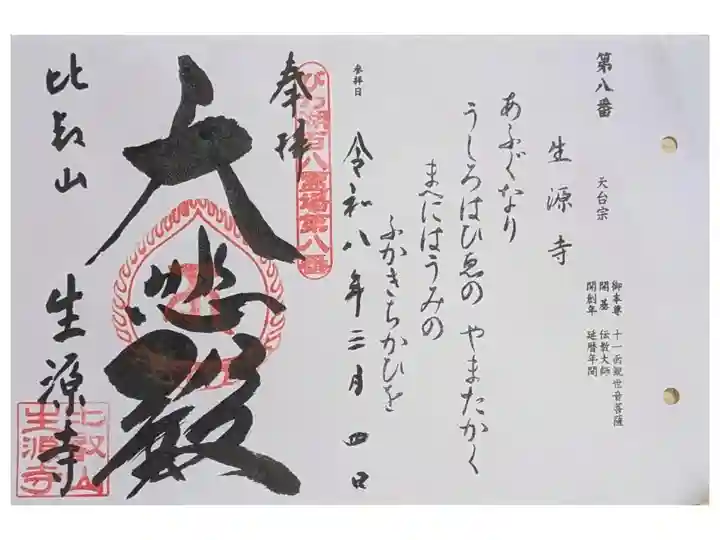 第八番
天台宗
御本尊 十一面観世音菩薩
開基 伝教大師
開創年 延暦年間
生源寺
あふぐなり
うしろはひゑの やまたかく
まへにはうみの
ふかきちかひを
参拝日
令和八年三月四日
奉拝
びわ湖百八霊場第八番
大悲殿
比叡山 生源寺
比叡山
生源寺